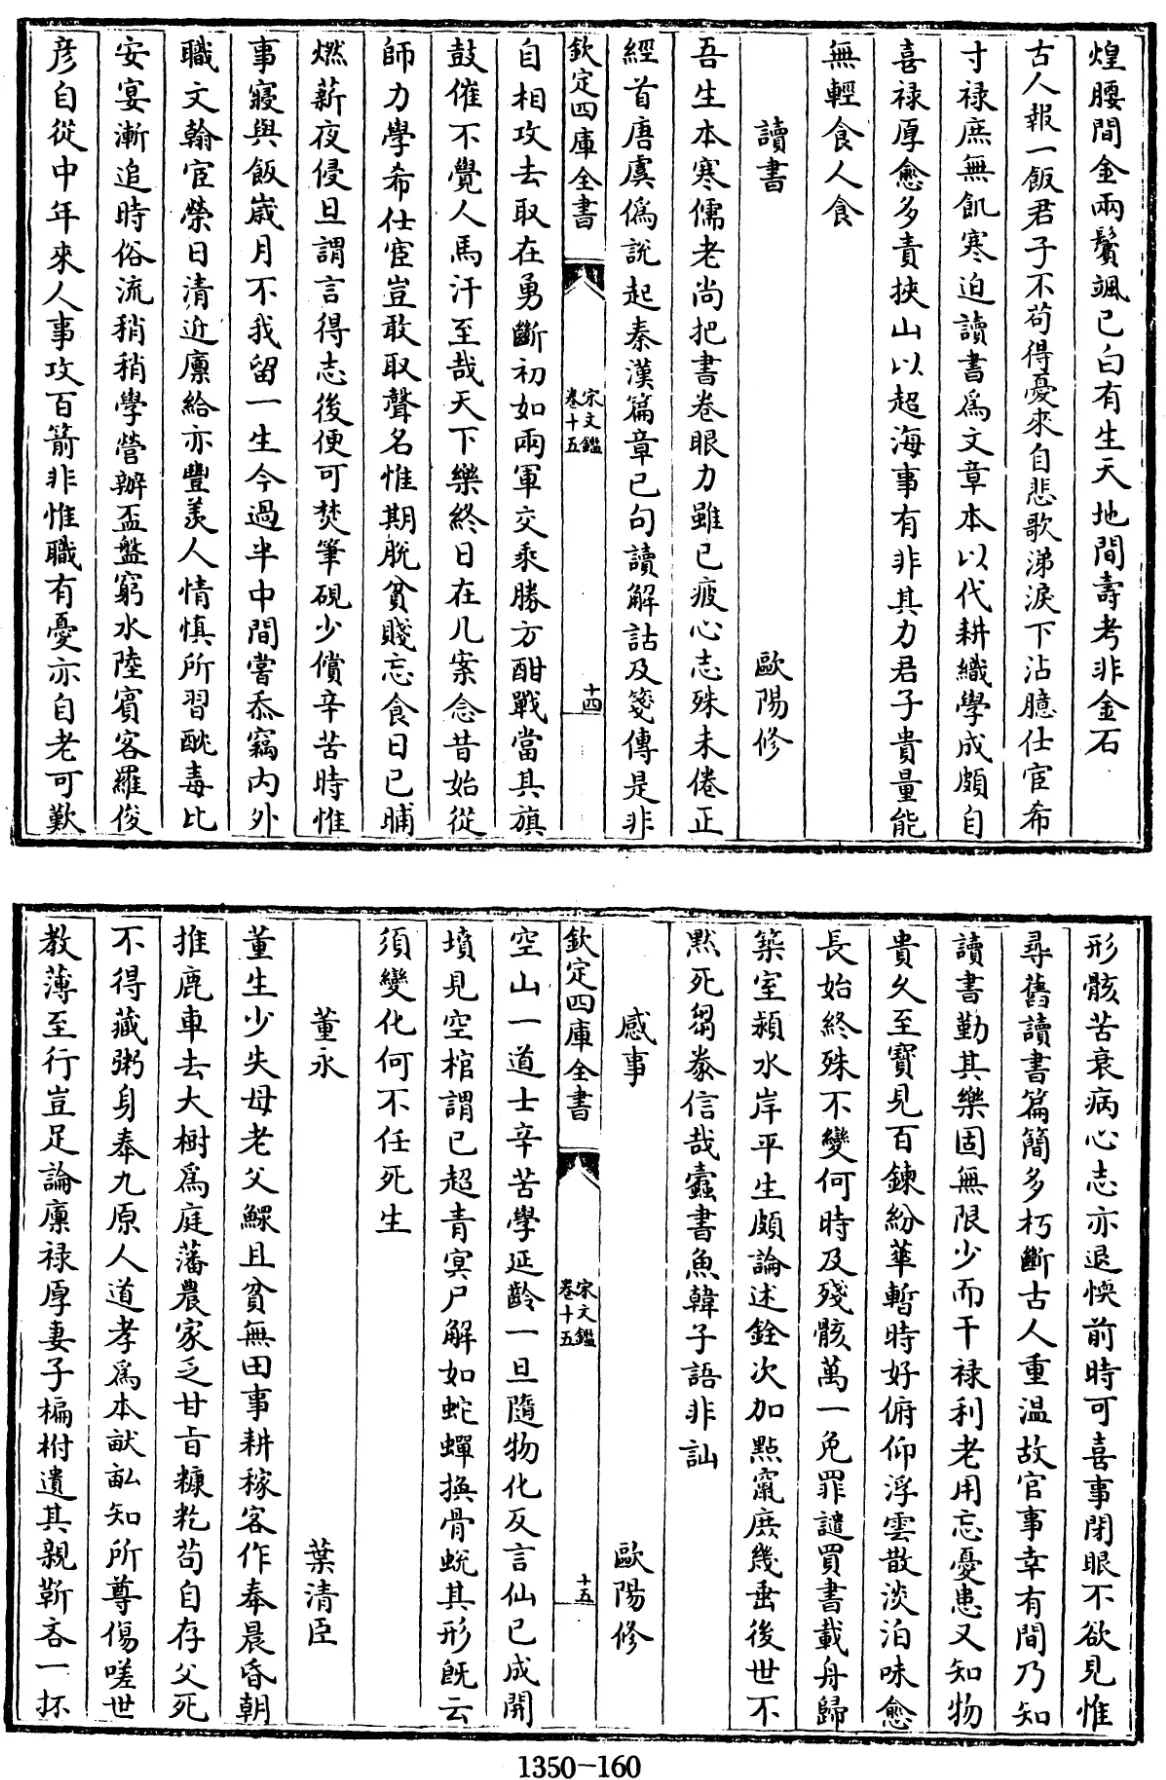 煌腰間金兩鬢颯已白有生天地間壽考非金石
古人報一飯君子不苟得憂來自悲歌涕淚下沾臆仕宦希
寸禄庶無飢寒迫讀書爲文章本以代耕織學成頗自
喜禄厚愈多責挾山以超海事有非其力君子貴量能
無輕食人食
讀書 歐陽修
吾生本寒儒老尚把書卷眼力雖已疲心志殊未倦正
經首唐虞僞說起秦漢篇章已句讀解詁及箋傳是非
欽定四庫全書 宋文鑑卷十五 十四
自相攻去取在勇斷初如兩軍交乘勝方酣戰當其旗
鼓催不覺人馬汗至哉天下樂終日在几案念昔始從
師力學希仕宦豈敢取聲名惟期脱貧賤忘食日已晡
燃薪夜侵旦謂言得志後便可焚筆硯少償辛苦時惟
事寢與飯歳月不我留一生今過半中間嘗忝竊内外
職文翰宦榮日清近廪給亦豐羙人情慎所習酖毒比
安宴漸追時俗流稍稍學營辦盃盤窮水陸賓客羅俊
彦自從中年來人事攻百箭非惟職有憂亦自老可歎
形骸苦衰病心志亦退愞前時可喜事閉眼不欲見惟
尋舊讀書篇簡多朽斷古人重温故官事幸有間乃知
讀書勤其樂固無限少而干禄利老用忘憂患又知物
貴久至寶見百鍊紛華暫時好俯仰浮雲散淡泊味愈
長始終殊不變何時及殘骸萬一免罪譴買書載舟歸
築室潁水岸平生頗論述銓次加點竄庶幾垂後世不
黙死芻豢信哉蠧書魚韓子語非訕
感事 歐陽修
欽定四庫全書 宋文鑑卷十五 十五
空山一道士辛苦學延齡一旦隨物化反言仙已成開
墳見空棺謂已超青冥尸解如蛇蟬換骨蛻其形既云
須變化何不任死生
董永 葉清臣
董生少失母老父鰥且貧無田事耕稼客作奉晨昏朝
推鹿車去大樹爲庭藩農家乏甘㫖糠籺苟自存父死
不得藏粥身奉九原人道孝爲本畎畝知所尊傷嗟世
教薄至行豈足論廪禄厚妻子楄柎遺其親靳吝一抔
1350-160